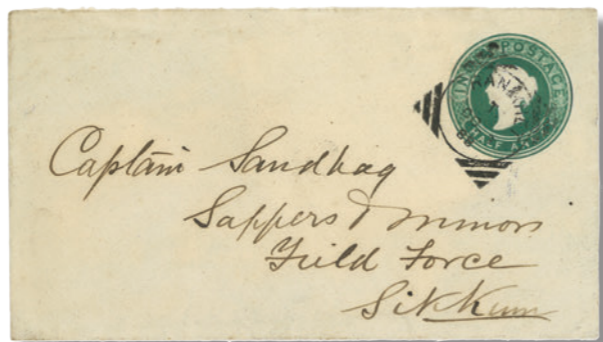 INDIA POSTAGE
HALF AN
88
Captain Sandbag
Sappers & Minors
Field Force
Sikkim